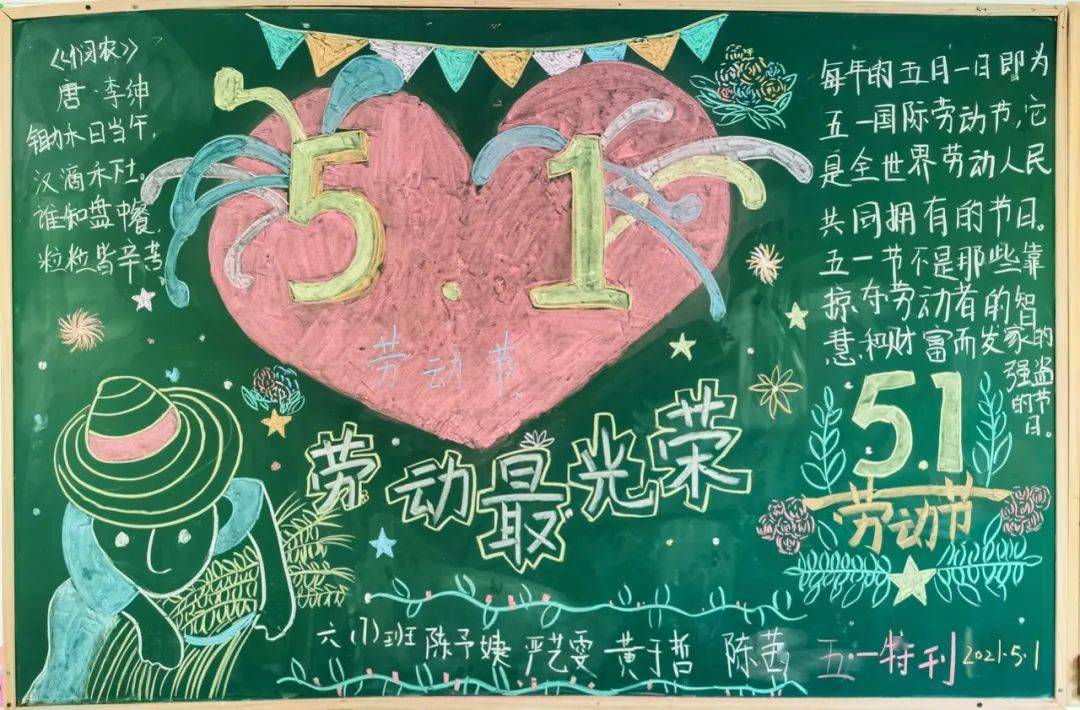 《悯农》
唐·李绅
锄禾日当午,
汗滴禾下土。
谁知盘中餐,
粒粒皆辛苦
5.1
劳动节
劳动最光荣
每年的五月一日即为
五一国际劳动节,它
是全世界劳动人民
共同拥有的节日。
五一节不是那些靠
掠夺劳动者的智
慧和财富而发家的
强盗
的节
日。
5.1
劳动节
六(1)班 陈予婕 严艺雯 黄于哲 陈茜 五·一特刊 2021·5·1